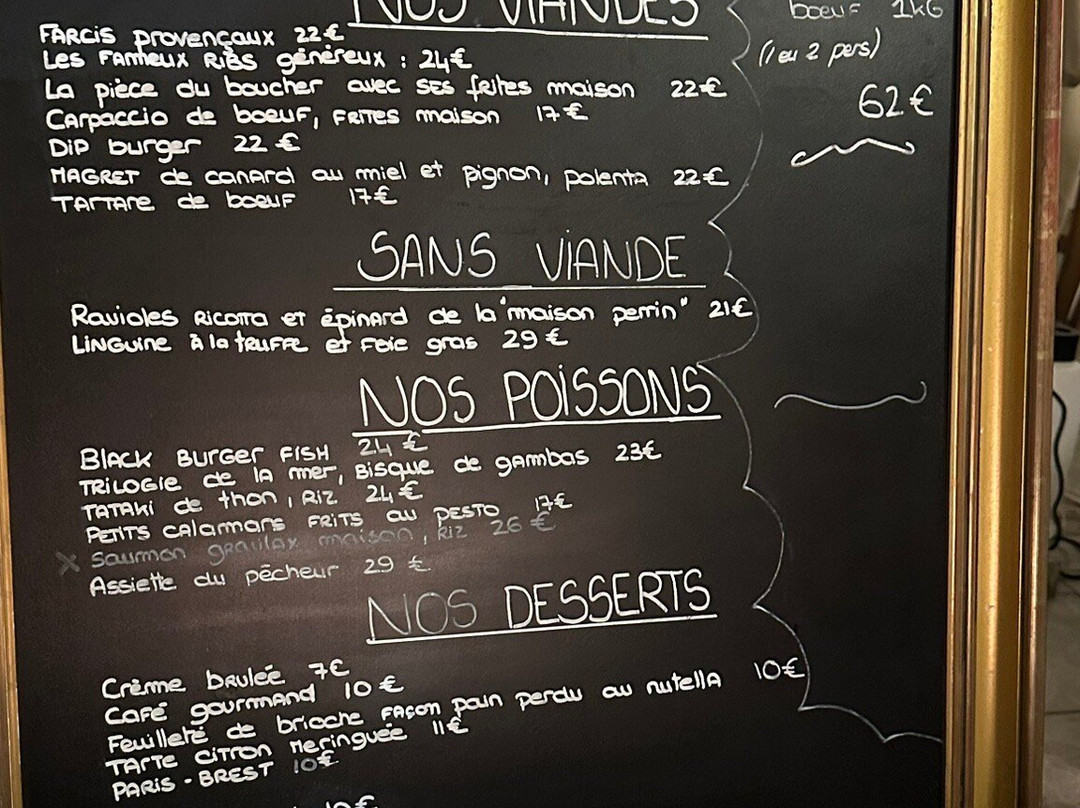 NOS VIANDES
FARCIS provençaux 22€
Les Fameux Ribs généreux : 24€
La pièce du boucher avec ses frites maison 22€
Carpaccio de boeuf, FRITES maison 17€
Dip burger 22€
MAGRET de canard au miel et pignon, polenta 22€
TARTARE de boeuf 17€
boeuf 1KG
(1 eu 2 pers)
62€
SANS VIANDE
Ravioles Ricotta et épinard de la "maison perrin" 21€
Linguine à la truffe et Foie gras 29€
NOS POISSONS
Black Burger Fish 24€
Trilogie de la mer, Bisque de gambas 23€
Tataki de thon, Riz 24€
Petits calamars frits au pesto 17€
X Saumon gravlax maison, Riz 26€
Assiette du pêcheur 29€
NOS DESSERTS
Crème brulée 7€
Café gourmand 10€
Feuilleté de brioche façon pain perdu au nutella 10€
Tarte citron Meringuée 11€
PARIS-BREST 10€
10€